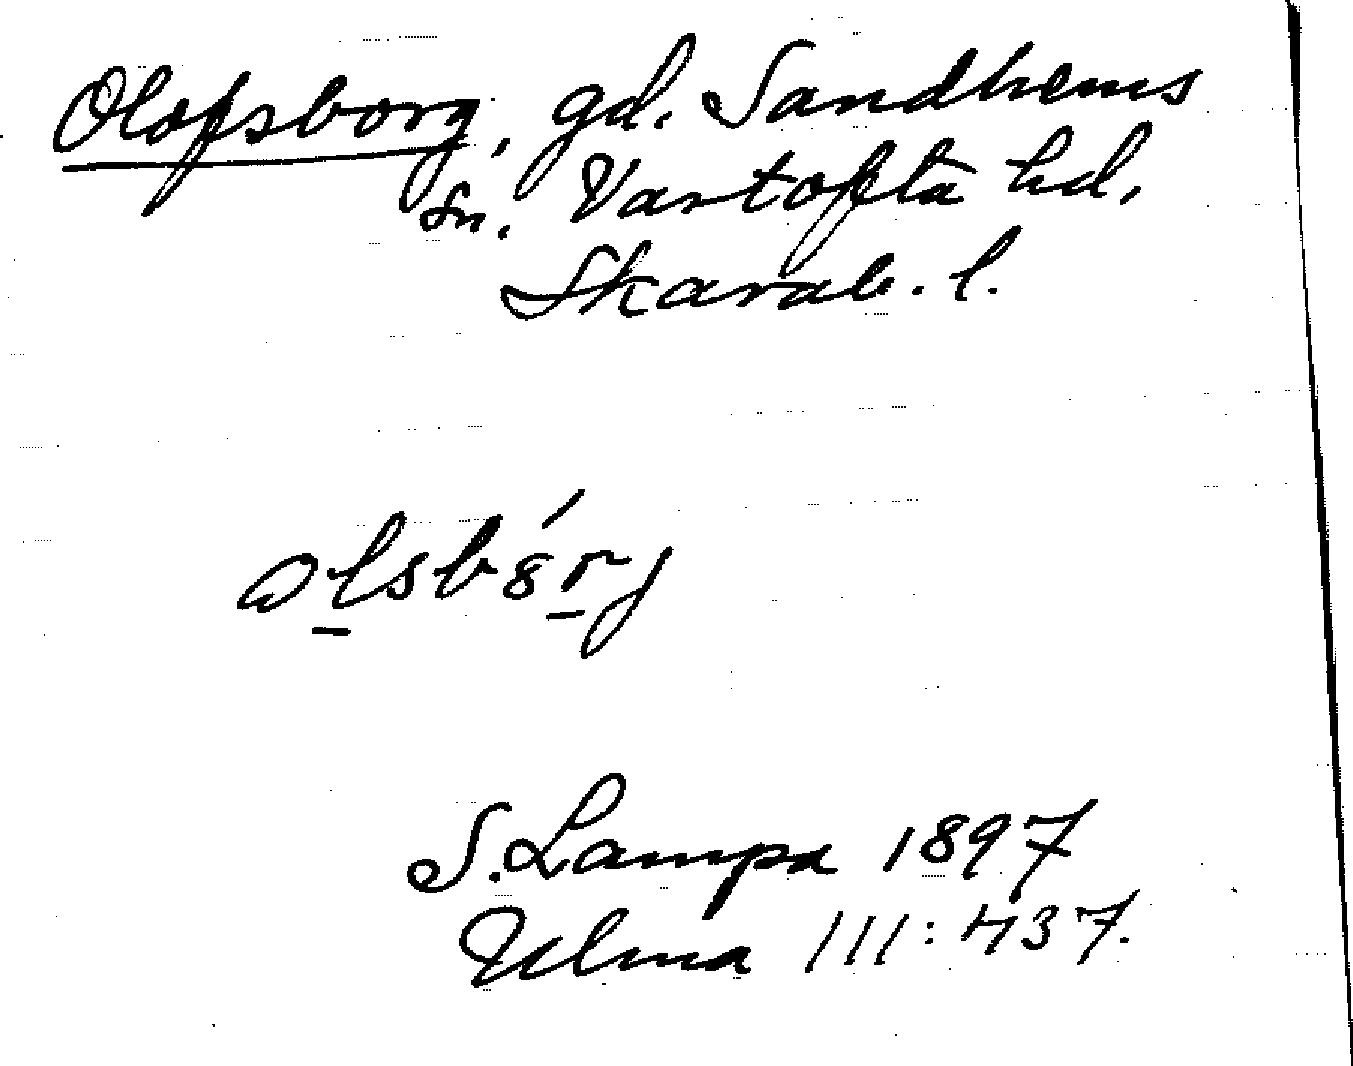 Olofsborg, gd. Sandhems
sn. Vartofta hd.
Skarab. l.
S. Lampa 1897
Ulma 111:437.